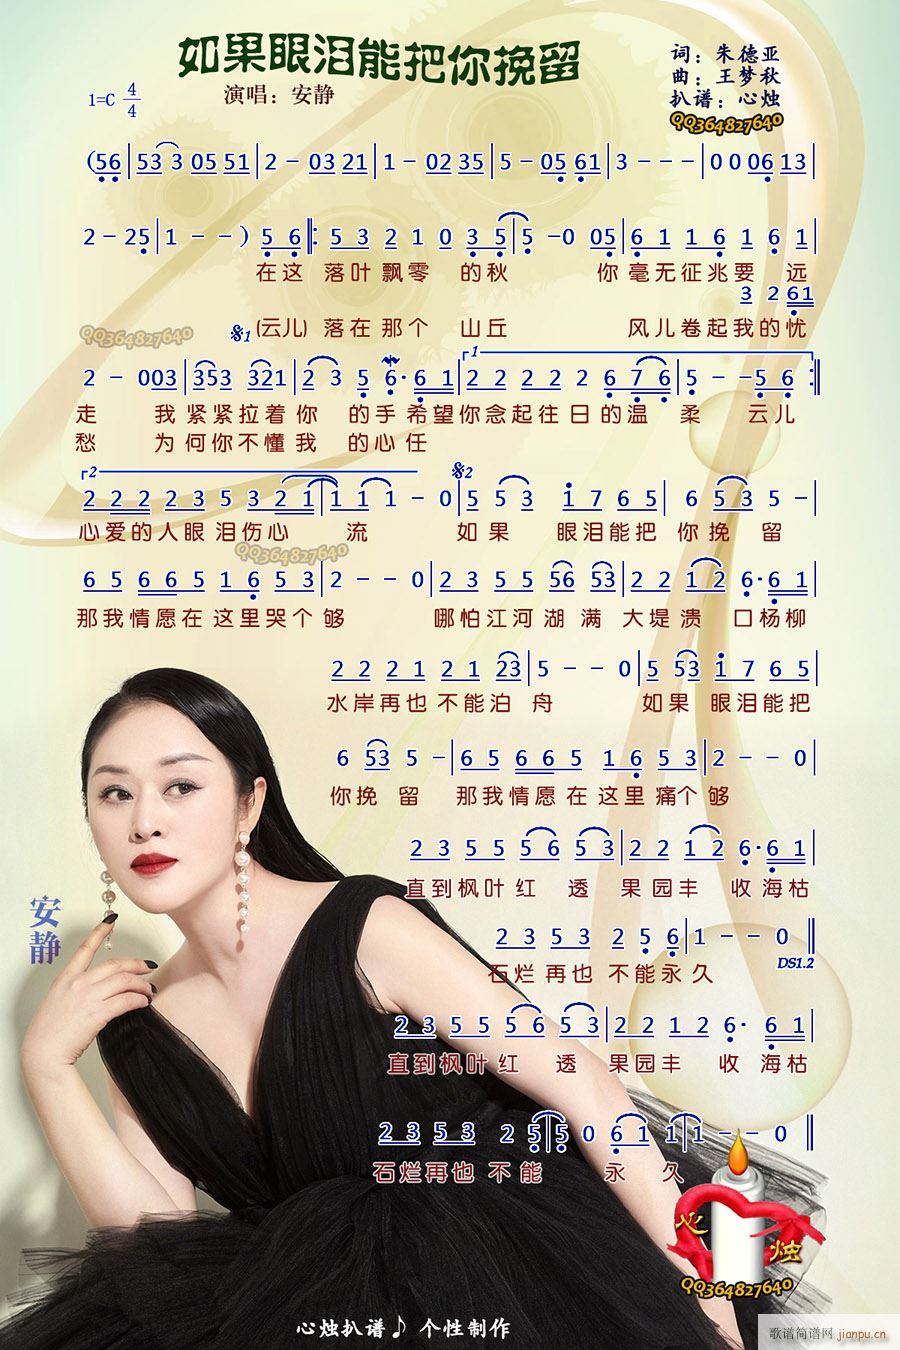 如果眼泪能把你挽留
演唱：安静
词：朱德亚
曲：王梦秋
扒谱：心烛
QQ364827640
1=C 4/4
(56|53 3 05 51|2 - 03 21|1 - 02 35|5 - 05 61|3 - - -|0 0 06 13|
2 - 25|1 - - ) 5 6‖: 5 3 2 1 0 3 5|5 -0 05|6 1 1 6 1 6 1|
在这 落叶飘零 的秋 你 毫无征兆要 远
3 2 61
QQ364827640
𝄋1 (云儿) 落在那个 山丘 风儿卷起我的忧
2 - 003|353 321|2 3 5 6· 6 1|1 2 2 2 2 2 6 7 6|5 - -5 6 :‖
走 我 紧紧拉着你 的手希望你念起往日的温 柔 云儿
愁 为 何你不懂我 的心任
2
𝄋2
2 2 2 2 3 5 3 2 1|1 1 1 - 0|5 5 3 1 7 6 5|6 5 3 5 -|
心爱的人眼泪伤心 流 如果 眼泪能把 你挽 留
QQ364827640
6 5 6 6 5 1 6 5 3|2 - - 0|2 3 5 5 56 53|2 2 1 2 6· 6 1|
那我情愿在这里哭个够 哪怕江河湖 满 大堤溃 口杨柳
2 2 2 1 2 1 23|5 - - 0|5 53 1 7 6 5|
水岸再也不能泊 舟 如果 眼泪能把
6 53 5 -|6 5 6 6 5 1 6 5 3|2 - - 0|
你挽 留 那我情愿在这里痛个够
2 3 5 5 5 6 5 3|2 2 1 2 6· 6 1|
直到枫叶红 透 果园丰 收海枯
安静
2 3 5 3 2 5 6|1 - - 0‖
DS1.2
石烂再也 不能永久
2 3 5 5 5 6 5 3|2 2 1 2 6· 6 1|
直到枫叶红 透 果园丰 收 海枯
2 3 5 3 2 5|5 0 6 1 1|1 - - 0‖
石烂再也 不 能 永 久
心烛
QQ364827640
心烛扒谱♪ 个性制作
歌谱简谱网 jianpu.cn